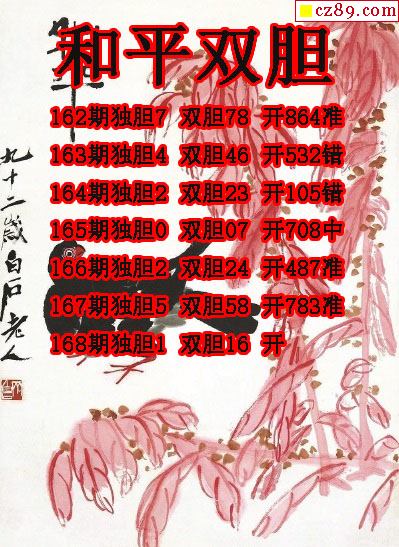 cz89.com
和平双胆
162期独胆7 双胆78 开864准
163期独胆4 双胆46 开532错
164期独胆2 双胆23 开105错
165期独胆0 双胆07 开708中
166期独胆2 双胆24 开487准
167期独胆5 双胆58 开783准
168期独胆1 双胆16 开
九十二岁白石老人